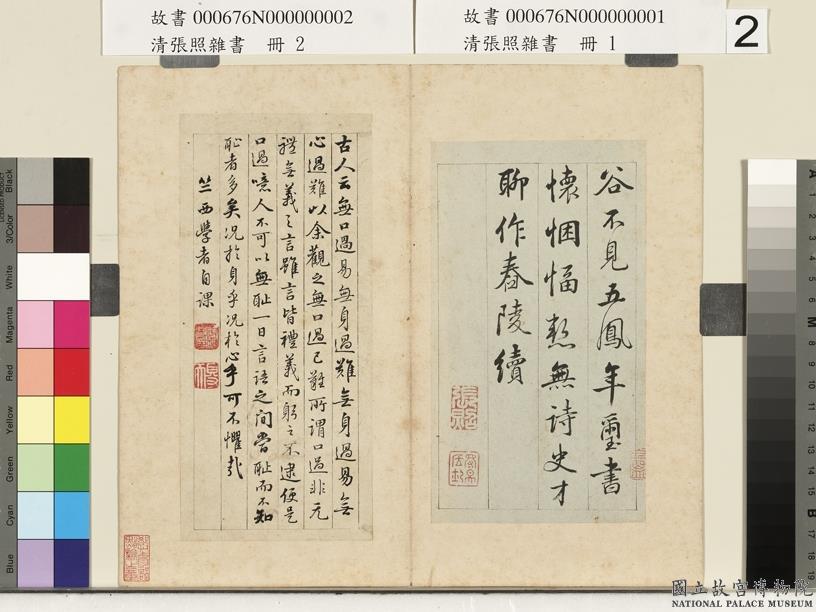 故書 000676N000000002
清張照雜書 冊 2
故書 000676N000000001
清張照雜書 冊 1
2
谷不見五鳳年璽書
懷悃愊愁無詩史才
聊作舂陵續
古人云無口過易無身過難無身過易無
心過難以余觀之無口過已難所謂口過非无
禮無義之言雖言皆禮義而躬之不逮便是
口過噫人不可以無恥一日言語之間當恥而不知
恥者多矣况於身乎况於心乎可不懼哉
竺西學者自課
Black
3/Color
White
Magenta
Red
Yellow
Green
Cyan
Blue
國立故宮博物院
NATIONAL PALACE MUSEUM